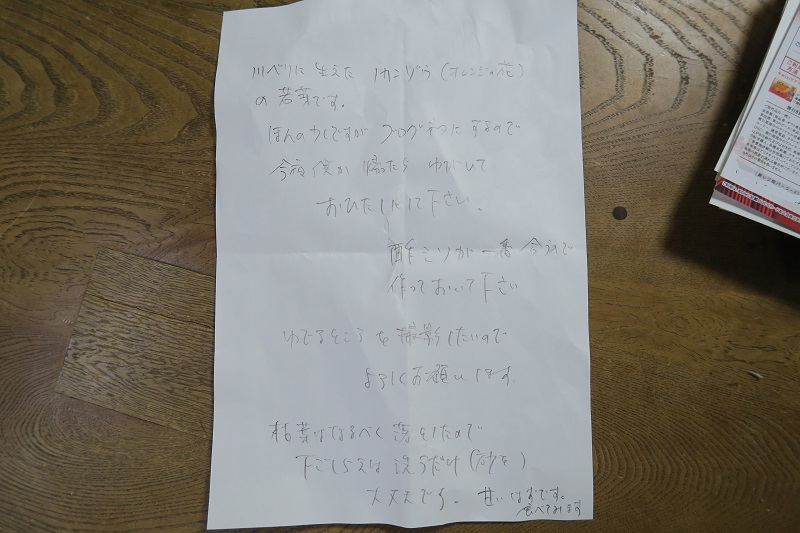 川べりに生えた ノカンゾウ (オレンジの花)
の若芽です。
ほんの少しですが ブログネタにするので
今夜僕が帰ったら ゆがいて
おひたしにして下さい。
酢ミソが一番合うので
作っておいて下さい
ゆでるところを撮影したいので
よろしくお願いします
枯葉はなるべく落としたので
下ごしらえは 洗うだけ (砂を)
大丈夫です。 甘いはずです。
食べてみます